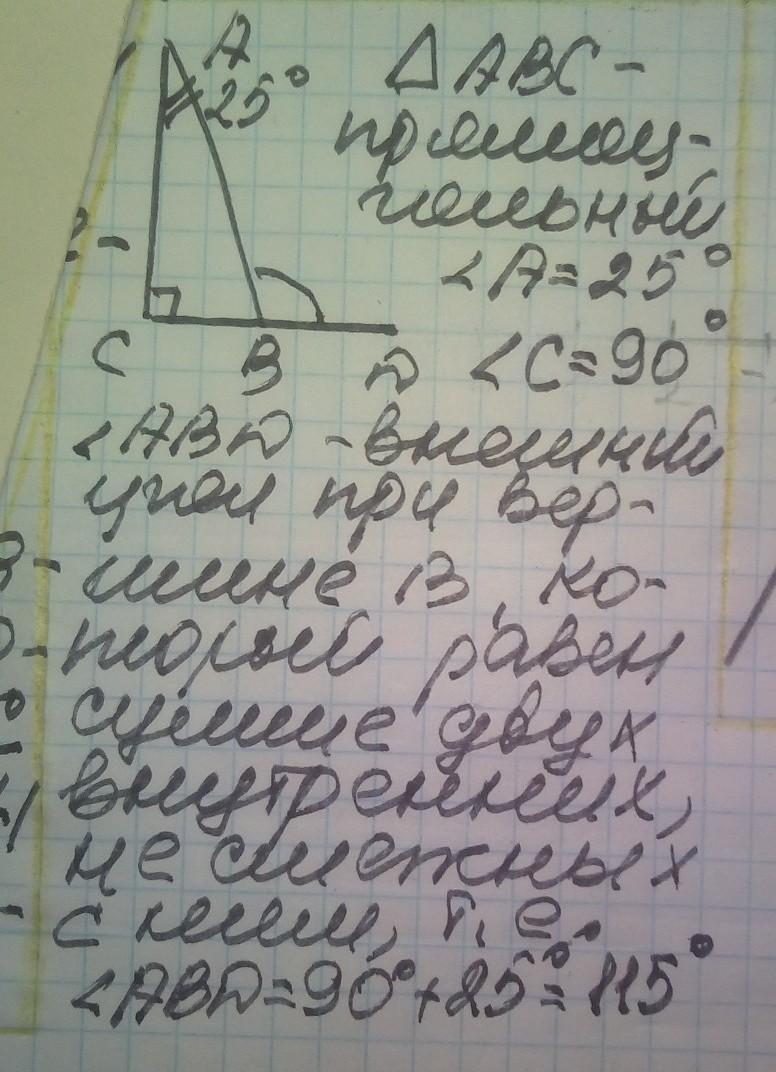 A
25°
△ABC -
прямоу-
гольный
∠A = 25°
C B D ∠C = 90°
∠ABD - внешний
угол при вер-
шине B, ко-
торый равен
сумме двух
внутренних,
не смежных
с ним, т.е.
∠ABD = 90° + 25° = 115°